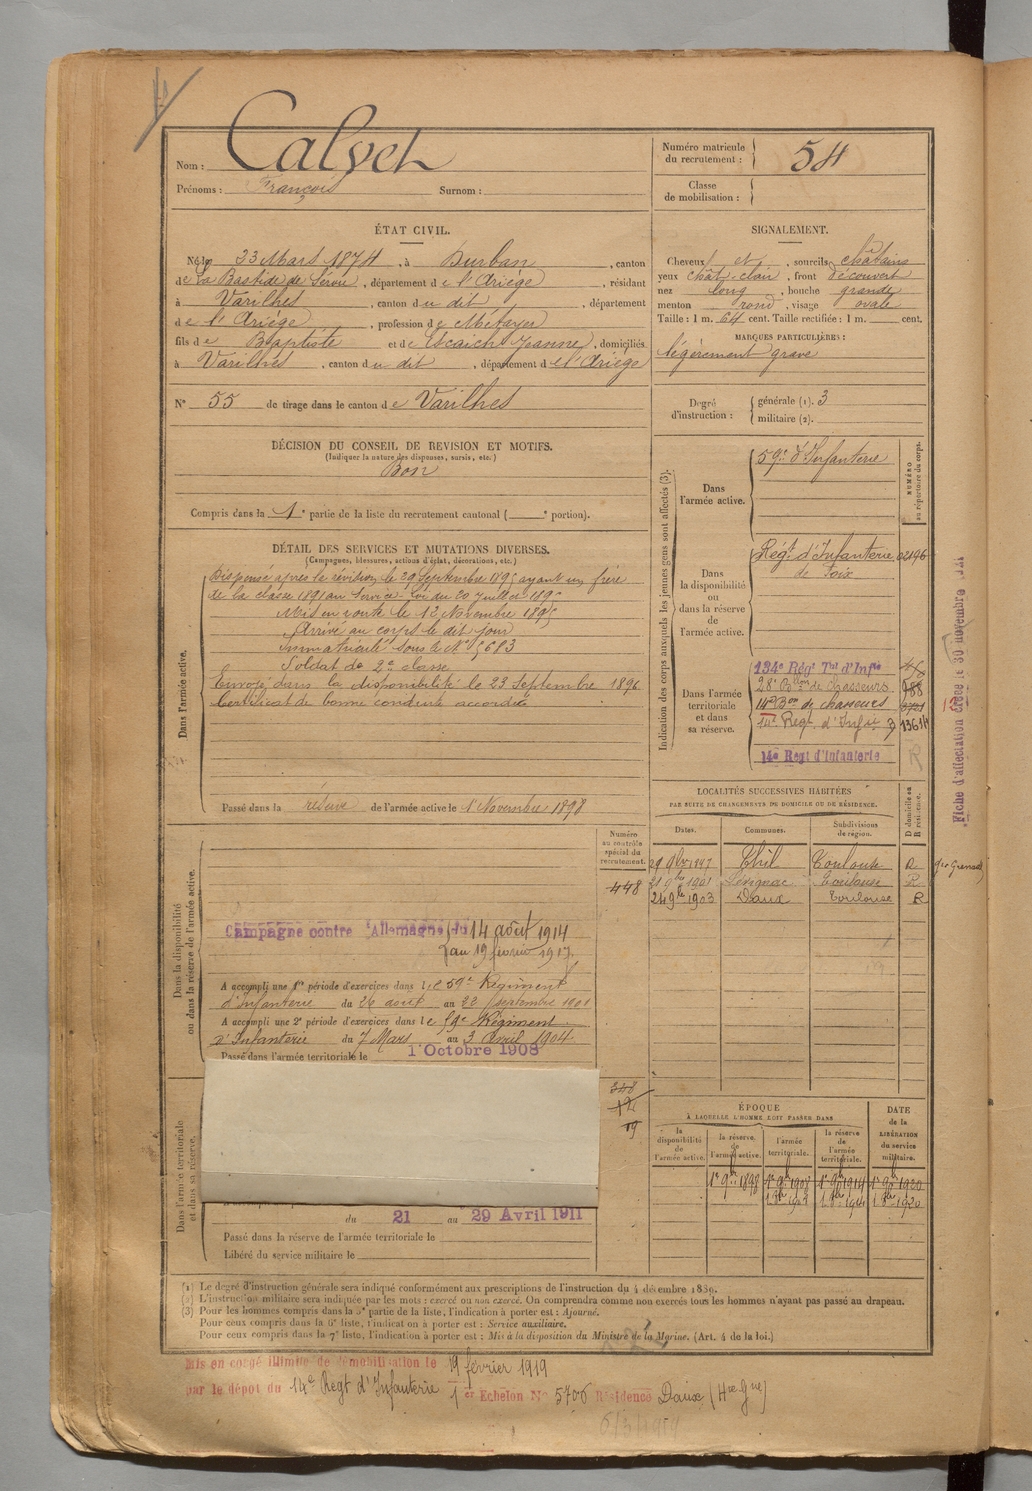 Nom : Calvet
Prénoms : François Surnom :
Numéro matricule du recrutement : 54
Classe de mobilisation :
ÉTAT CIVIL.
Né le 23 Mars 1874, à Durban, canton
de La Bastide de Sérou, département de l'Ariége, résidant
à Varilhes, canton du dit, département
de l'Ariége, profession de Métayer
fils de Baptiste et de Escaich Jeanne, domiciliés
à Varilhes, canton du dit, département de l'Ariége
N° 55 de tirage dans le canton de Varilhes
SIGNALEMENT.
Cheveux et, sourcils châtains
yeux chât. clair, front découvert
nez long, bouche grande
menton rond, visage ovale
Taille : 1 m. 64 cent. Taille rectifiée : 1 m. cent.
MARQUES PARTICULIÈRES :
légèrement gravé
Degré d'instruction : générale (1). 3
militaire (2).
DÉCISION DU CONSEIL DE REVISION ET MOTIFS.
(Indiquer la nature des dispenses, sursis, etc.)
Bon
Compris dans la 1e partie de la liste du recrutement cantonal ( e portion).
DÉTAIL DES SERVICES ET MUTATIONS DIVERSES.
(Campagnes, blessures, actions d'éclat, décorations, etc.)
Dans l'armée active.
Dispensé après la révision le 29 Septembre 1895 ayant un frère
de la classe 1891 au service. Loi du 20 Juillet 1895
Mis en route le 12 Novembre 1895
Arrivé au corps le dit jour
Immatriculé sous le N° 5683
Soldat de 2e classe
Envoyé dans la disponibilité le 23 Septembre 1896
Certificat de bonne conduite accordé
Passé dans la réserve de l'armée active le 1 Novembre 1898
Indication des corps auxquels les jeunes gens sont affectés (3).
NUMÉRO au répertoire du corps.
Dans l'armée active.
59e d'Infanterie
Dans la disponibilité ou dans la réserve de l'armée active.
Régt d'Infanterie 02196
de Foix
Dans l'armée territoriale et dans sa réserve.
134e Régt Tal d'Infie
28e Bllon de chasseurs 988
14e Bon de chasseurs
14e Regt d'Infie 13614
14e Regt d'Infanterie R
Fiche d'affectation créée le 30 novembre
LOCALITÉS SUCCESSIVES HABITÉES
PAR SUITE DE CHANGEMENTS DE DOMICILE OU DE RÉSIDENCE.
D domicile ou R résidence.
Dates. Communes. Subdivisions de région.
Thil Toulouse R
21 9bre 1901 Toulouse R
24 9bre 1903 Daux Toulouse R
Dans la disponibilité ou dans la réserve de l'armée active.
Numéro au contrôle spécial du recrutement.
448
Campagne contre l'Allemagne du 14 août 1914
au 19 février 1917
A accompli une 1re période d'exercices dans le 59e Régiment
d'Infanterie du 26 août au 22 septembre 1901
A accompli une 2e période d'exercices dans le 59e Régiment
d'Infanterie du 7 Mars au 3 avril 1904
Passé dans l'armée territoriale le 1 Octobre 1908
Dans l'armée territoriale et dans sa réserve.
348
12
19
du 21 au 29 Avril 1911
Passé dans la réserve de l'armée territoriale le
Libéré du service militaire le
ÉPOQUE
À LAQUELLE L'HOMME DOIT PASSER DANS
la disponibilité de l'armée active.
la réserve de l'armée active.
l'armée territoriale.
la réserve de l'armée territoriale.
DATE de la LIBÉRATION du service militaire.
1er 9bre 1898 1er 9bre 1908 1er 9bre 1914 1er 9bre 1920
(1) Le degré d'instruction générale sera indiqué conformément aux prescriptions de l'instruction du 4 décembre 1889.
(2) L'instruction militaire sera indiquée par les mots : exercé ou non exercé. On comprendra comme non exercés tous les hommes n'ayant pas passé au drapeau.
(3) Pour les hommes compris dans la 5e partie de la liste, l'indication à porter est : Ajourné.
Pour ceux compris dans la 6e liste, l'indication à porter est : Service auxiliaire.
Pour ceux compris dans la 7e liste, l'indication à porter est : Mis à la disposition du Ministre de la Marine. (Art. 4 de la loi.)
Mis en congé illimité de démobilisation le 19 février 1919
par le dépôt du 14e Regt d'Infanterie 1er Echelon No 5706 Résidence Daux (Hte Gne)
6/3/1919